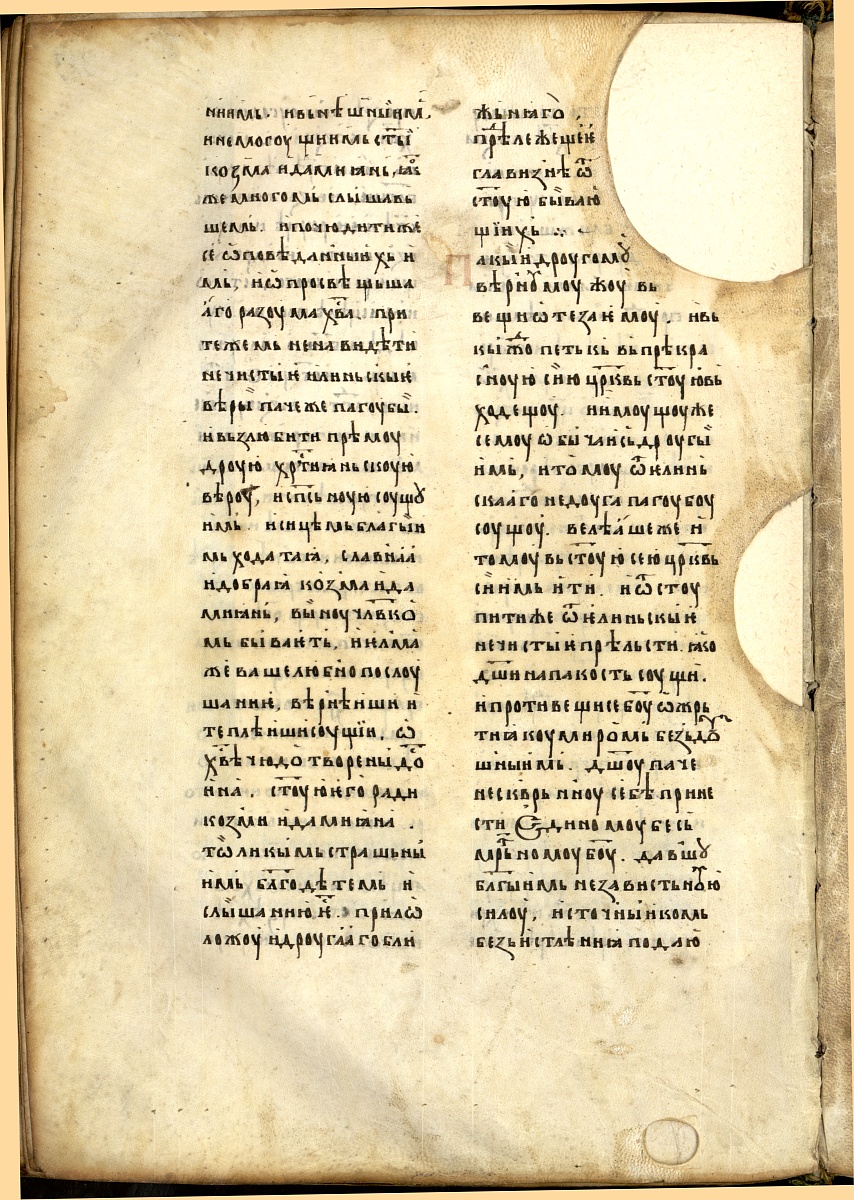 ниимь. и вьнѣшныимь.
и не могоущиимь ст҃ыи
козма и дамиꙗнь, ꙗко
же многомь слышавь
шемь. и почюдити же
се ѡ повѣданныихь и
мь, и ѡ просвѣщьша
аго разоума хв҃а. при
теже мь ненавидѣти
нечистыѥ ѥлиньскыѥ
вѣры паче же пагоубы.
и вьзлюбити прѣмоу
дроую хрⷭ҇тиꙗньскоую
вѣроу, и сп҃сьноую соущоу
имь. и сицѣмь благыи
мь ходатаꙗ, славнаꙗ
и добраꙗ козма и да
миꙗнь, выноу чл҃вко
мь бываѥть, и ѥлма
же ваше любно послоу
шаниѥ, вѣрнѣиши и
теплѣиши соущїи, ѡ
хв҃ѣ чюдотворены до
ина. ст҃оую ѥго ради
козми и дамиꙗна.
толикымь страшьны
имь бл҃годѣтемь и
слышанию ѥ. прило
жоу и дроугаго бли
жьнꙗго,
прѣлежещеѥ
главизнѣ ѿ
ст҃оую бываю
щїихь
Пакы и дроугомоу
вѣрномоу моужоу вь
вещи ѡтезаѥмоу. и вь
кыждо петькь вь прѣкра
сноую сию цр҃квь ст҃оую вь
ходещоу. и имоущоу же
семоу ѡбычаи сь дроугы
имь, и томоу ѿ ѥлинь
скааго недоуга пагоубоу
соущоу. велѣаше же и
томоу вь ст҃оую сею цр҃квь
сь нимь ити. и ѿстоу
пити же ѿ ѥлиньскыѥ
нечистыѥ прѣльсти. ꙗко
дш҃и на пакость соущи.
и противещи се боу ѡ жрь
тиꙗ коумиромь бездоу
шныимь. дш҃оу паче
нескврьнноу себѣ прине
сти Единомоу бесь
мрьтномоу боу. давшоу
бл҃гыимь независтьною
силоу, источныикомь
безь истлѣниꙗ подаю